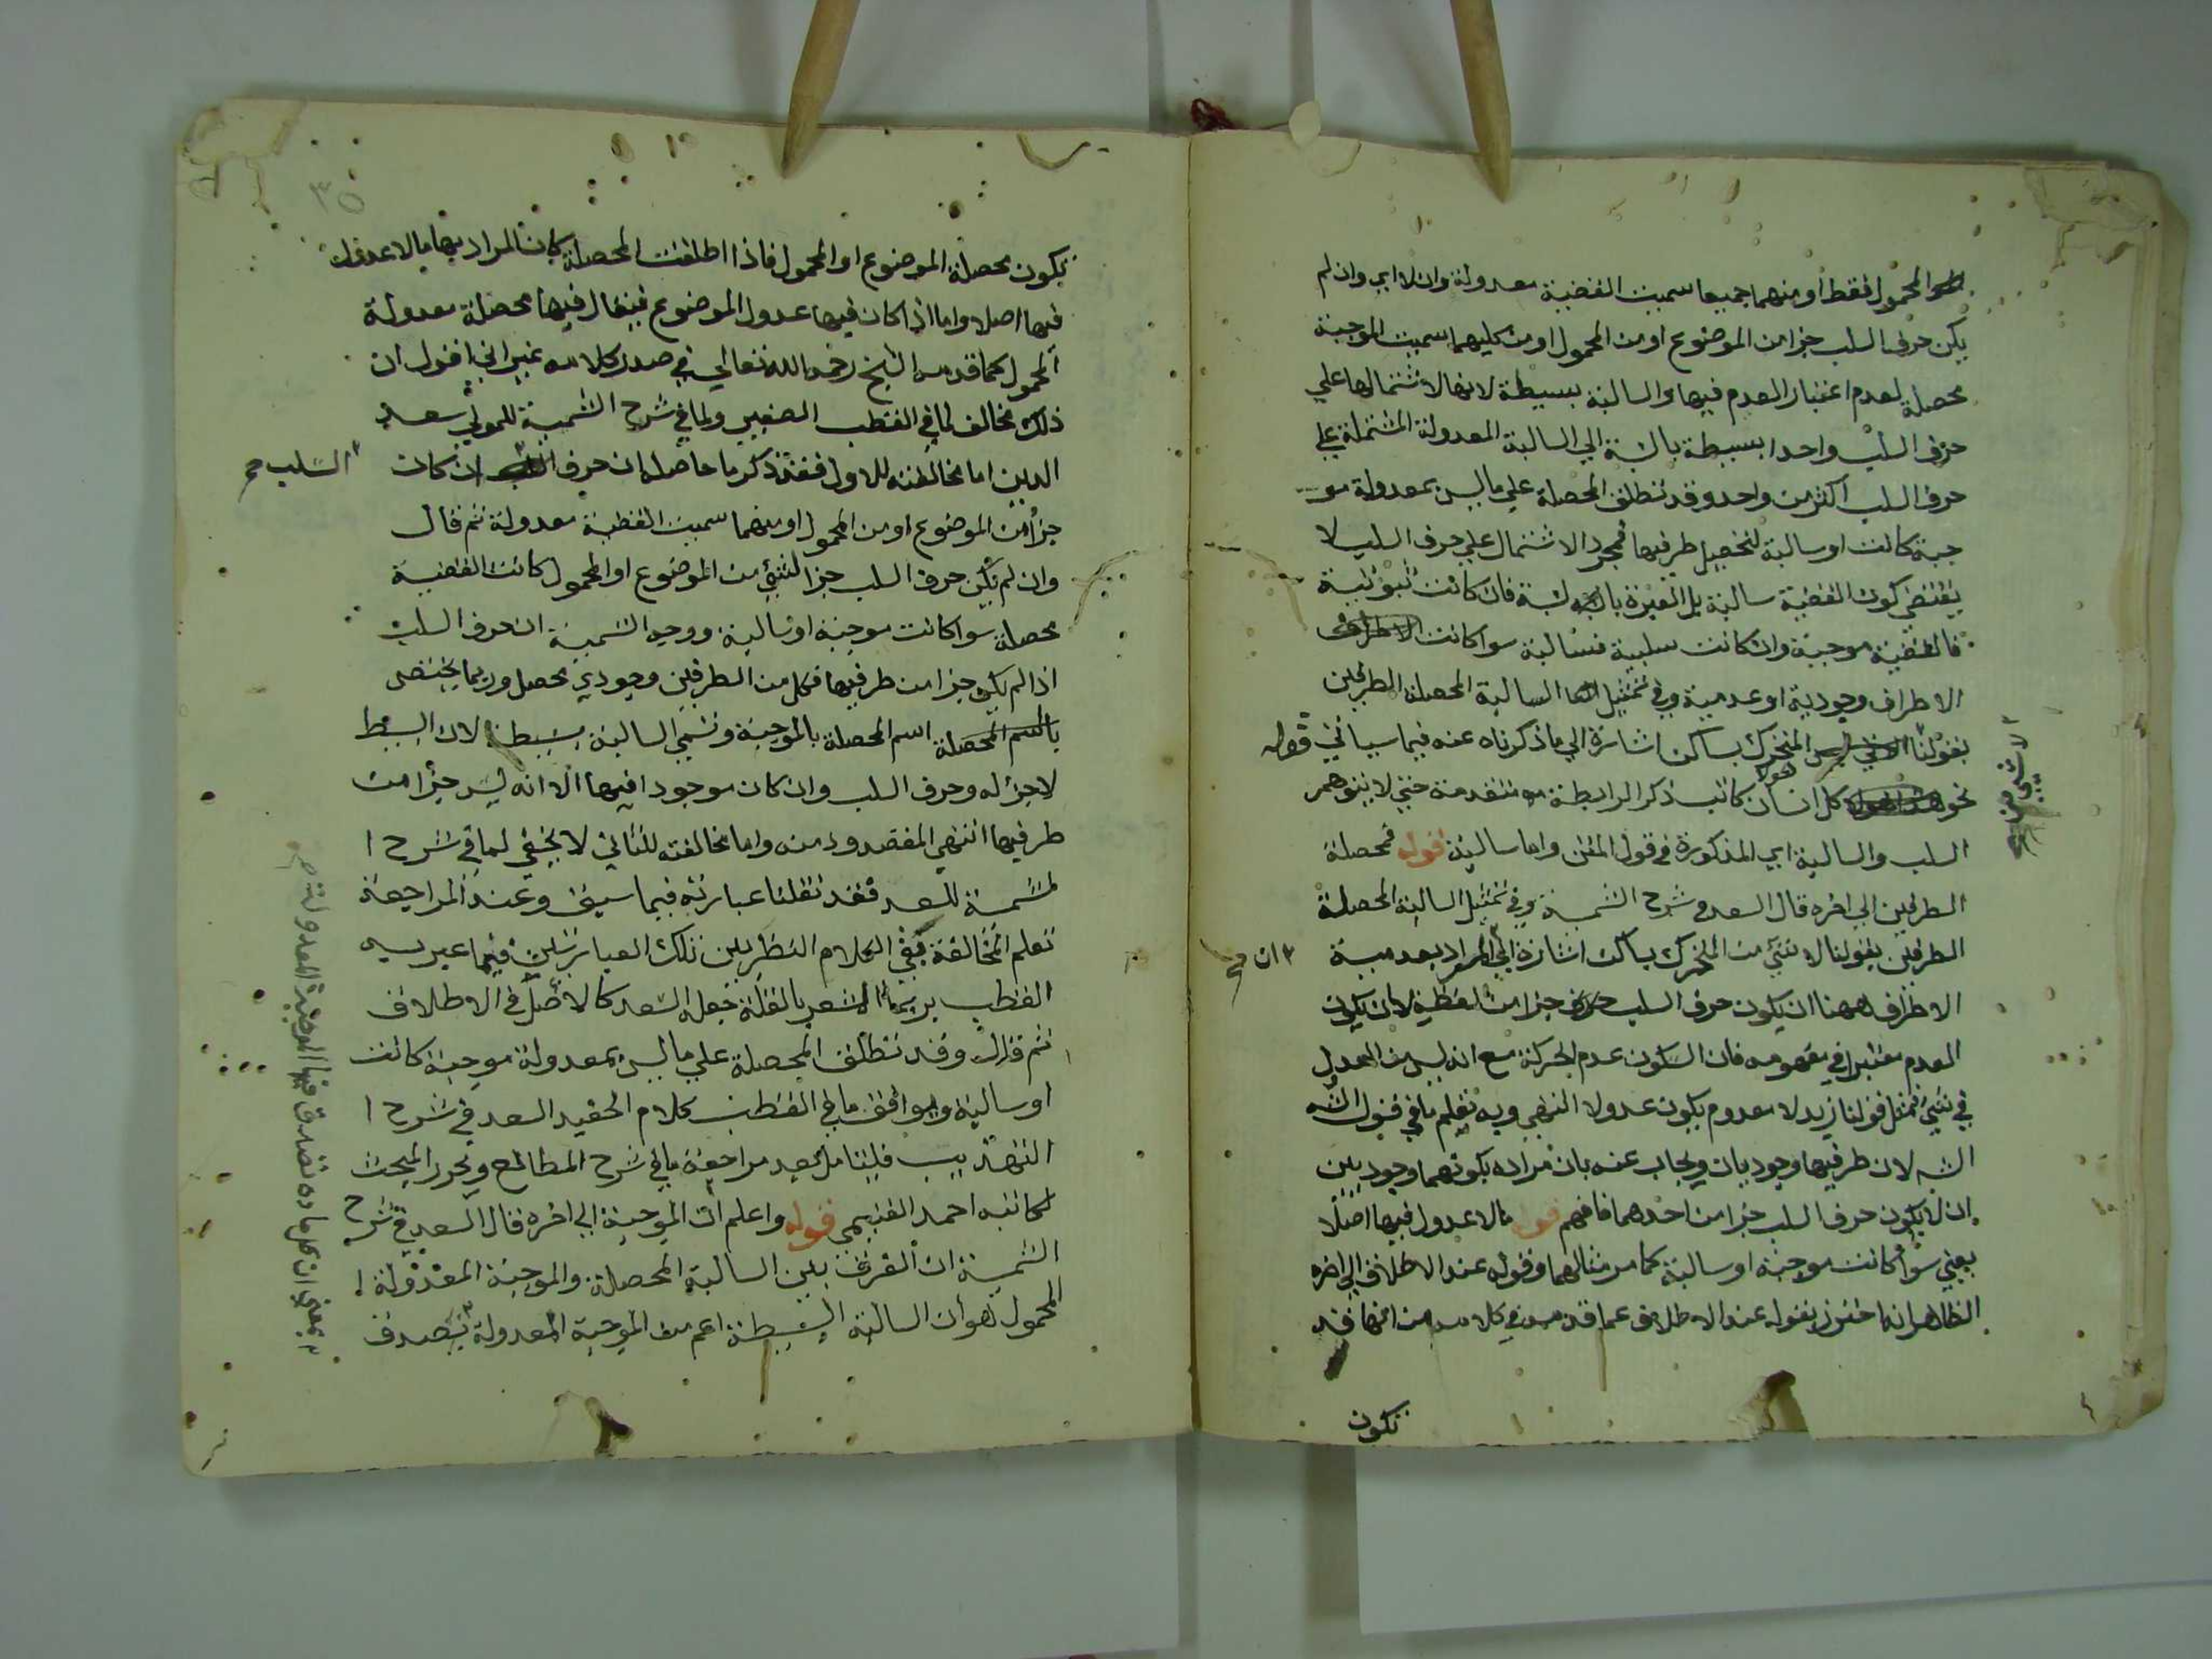 المحمول فقط او منهما جميعا سميت القضية معدولة وان لا اي وان لم
يكن حرف السلب جزا من الموضوع او من المحمول او من كليهما سميت الموجبة
محصلة لعدم اعتبار العدم فيها والسالبة بسيطة لانها لاشتمالها علي
حرف السلب واحدا بسيطة بالنسبة الي السالبة المعدولة المشتملة علي
حرف السلب اكثر من واحد وقد تطلق المحصلة علي ما ليس بمعدولة مو
جبة كانت او سالبة لتحصيل طرفيها فمجرد الاشتمال علي حرف السلب لا
يقتضي كون القضية سالبة بل العبرة بالنسبة فان كانت ثبوتية
فالقضية موجبة وان كانت سلبية فسالبة سوا كانت
الاطراف وجودية او عدمية وفي تمثيل السالبة المحصلة الطرفين
بقولنا المتحرك بساكن اشارة الي ما ذكرناه عنه فيما سياتي قوله
نحو كل انسان كاتب ذكر الرابطة متقدمة حتي لا يتوهم
السلب والسالبة اي المذكورة في قول المتن واما سالبة قوله فمحصلة
الطرفين الي اخره قال السعد في شرح الشمسية وفي تمثيل السالبة المحصلة
الطرفين بقولنا لا شئ من المتحرك بساكن اشارة الي المراد بعدمية
٢ ان صح
الاطراف ههنا ان يكون حرف السلب جزا من لفظه لا ان يكون
العدم معتبرا في مفهومه فان السكون عدم الحركة مع انه ليس من العدول
في شئ فمثل قولنا زيد لا معدوم يكون عدولا انتهي وبه تعلم ما في قول الش
الش لان طرفيها وجوديان ويجاب عنه بان مراده بكونهما وجوديين
ان لا يكون حرف السلب جزا من احدهما فافهم قوله مالا عدول فيها اصلا
يعني سوا كانت موجبة او سالبة كما مر مثالهما وقوله عند الاطلاق الي اخره
الظاهر انه احترز بقوله عند الاطلاق عما قدمه في كلامه من انها قد
تكون
٣٥
تكون محصلة الموضوع او المحمول فاذا اطلقت المحصلة كان المراد بها ما لا عدول
فيها اصلا واما اذا كان فيها عدول الموضوع فيقال فيها محصلة معدولة
المحمول كما قدمه الشيخ رحمه الله تعالي في صدر كلامه غير اني اقول ان
ذلك مخالف لما في القطب الصغير ولما في شرح الشمسية للمولي سعد
الدين اما مخالفته للاول فقد ذكر ما حاصله ان حرف ان كان
السلب صح
جزأ من الموضوع او من المحمول او منهما سميت القضية معدولة ثم قال
وان لم يكن حرف السلب جزا لشئ من الموضوع او المحمول كانت القضية
محصلة سوا كانت موجبة او سالبة ووجه التسمية ان حرف السلب
اذا لم يكن جزا من طرفيها فكل من الطرفين وجودي محصل وربما يختص
اسم المحصلة بالموجبة وتسمي السالبة بسيطة لان البسيط
لا جزء له وحرف السلب وان كان موجودا فيها الا انه ليس جزأ من
طرفيها انتهي المقصود منه واما مخالفته للثاني لا يخفي لما في شرح ا
لشمسية للسعد فقد نقلنا عبارته فيما سبق وعند المراجعة
تعلم المخالفة بقي الكلام النظر بين تلك العبارتين فيما عبر به
القطب بربما المشعر بالقلة جعله السعد كالاصل في الاطلاق
ثم قال وقد تطلق المحصلة علي ما ليس بمعدولة موجبة كانت
او سالبة ويوافق ما في القطب كلام الحفيد السعد في شرح ا
التهذيب فليتامل بعد مراجعة ما في شرح المطالع ويحرر المبحث
لكاتبه احمد الغنيمي قوله واعلم ان الموجبة الي اخره قال السعد في شرح
الشمسية ان الفرق بين السالبة المحصلة والموجبة المعدولة ا
لمحمول هو ان السالبة البسيطة اعم من الموجبة المعدولة تصدق